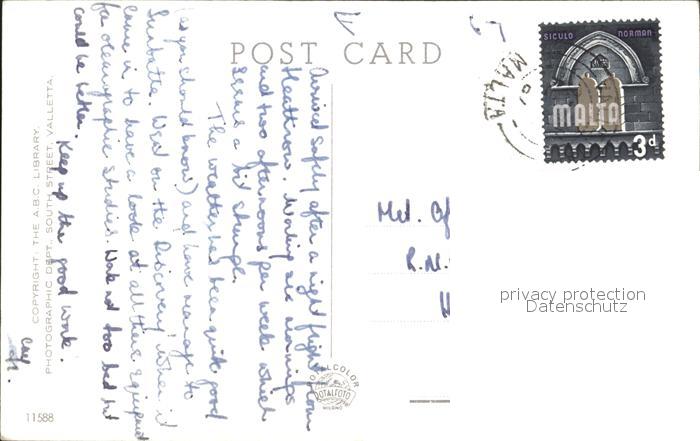 POST CARD
SICULO NORMAN
MALTA
3d
MALTA
Arrived safely after a night flight from
Heathrow. Working six mornings
and two afternoons per week which
seems a bit strange.
The weather has been quite good
(as you should know) and have manage to
Sunbathe. Went on the Discovery when it
came in to have a look at all their equipment
for oceanographic studies. Work not too bad but
could be better. Keep up the good work.
Met. Of
R.N.
privacy protection
Datenschutz
COPYRIGHT: THE A.B.C. LIBRARY.
PHOTOGRAPHIC DEPT., SOUTH STREET, VALLETTA.
TOTALCOLOR
TOTALFOTO
MILANO
11588